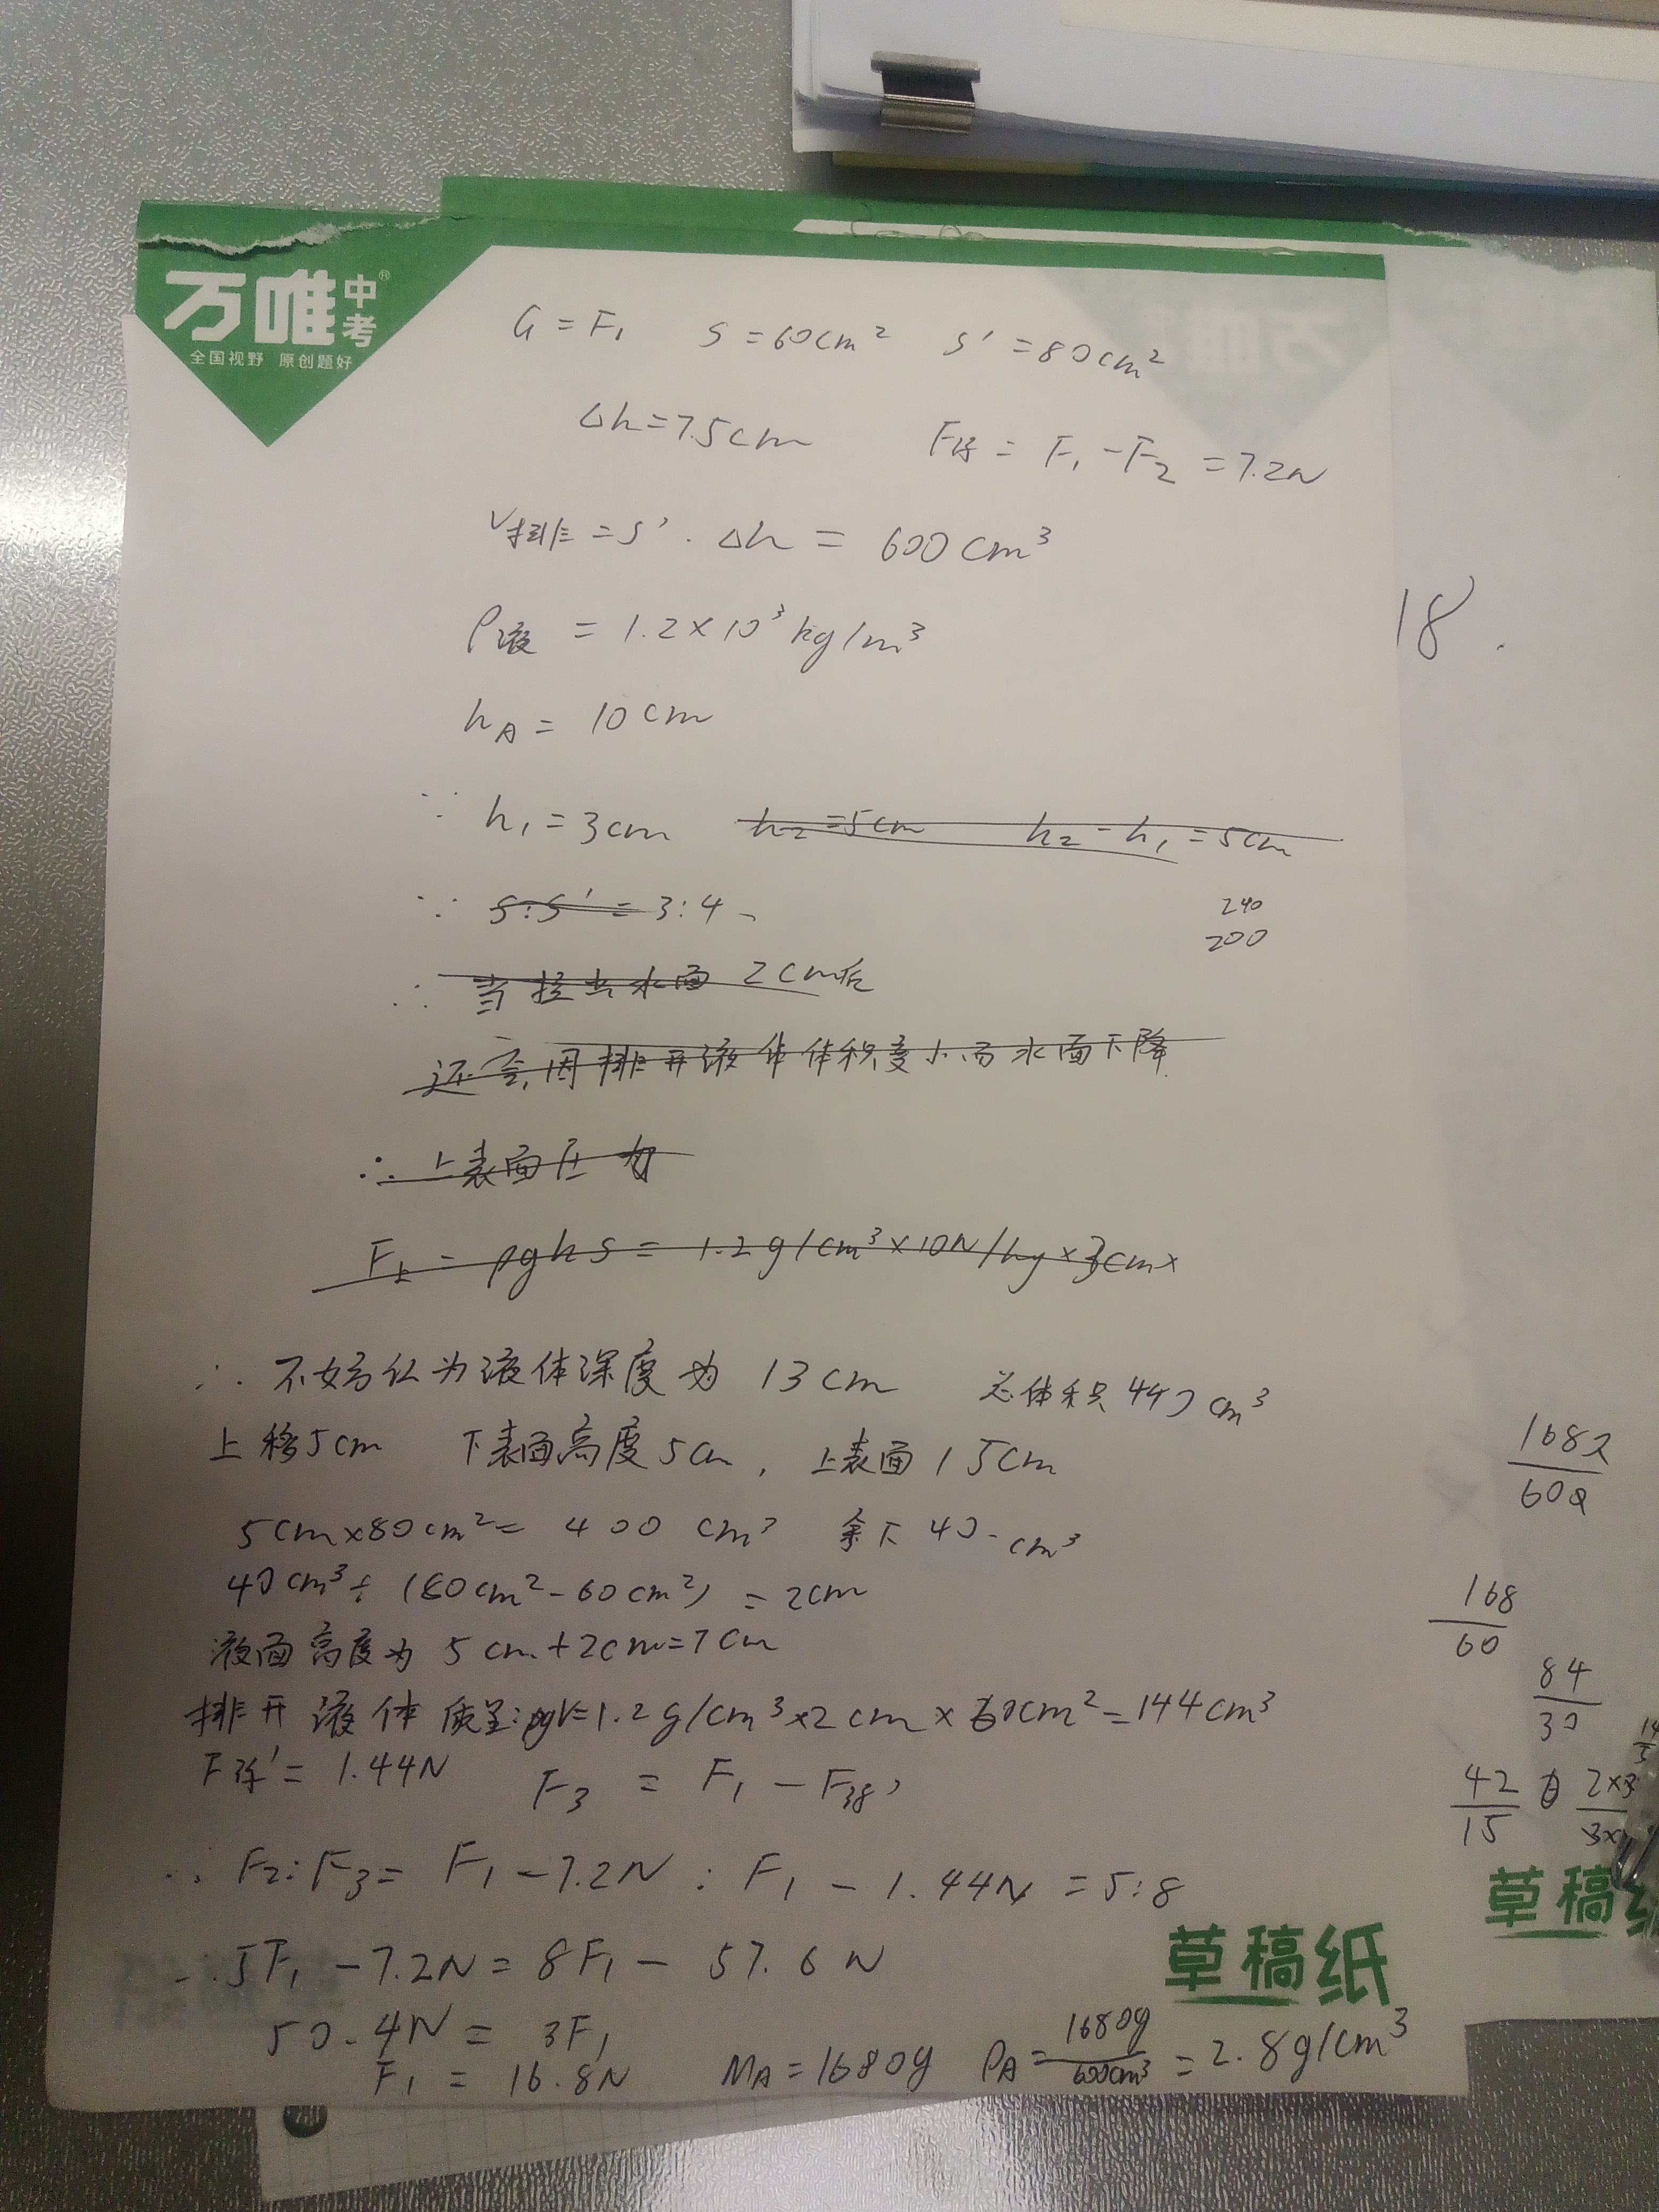 万唯中考®
全国视野 原创题好
G = F₁ S = 60cm² S' = 80cm²
Δh = 7.5cm F浮 = F₁ - F₂ = 7.2N
V排 = S' · Δh = 600cm³
ρ液 = 1.2×10³kg/m³
18.
h_A = 10cm
∵ h₁ = 3cm h₂ = 5cm h₂ - h₁ = 5cm
∵ S:S' = 3:4、
240
200
∴ 当拉出水面 2cm后
还会因排开液体体积变小而水面下降.
∴ 上表面压力
F上 = ρghS = 1.2g/cm³×10N/kg×3cm×
∴ 不妨认为液体深度为 13cm 总体积 440cm³
上移5cm 下表面高度5cm, 上表面 15cm
5cm×80cm² = 400cm³ 余下 40cm³
40cm³÷(80cm²-60cm²) = 2cm
液面高度为 5cm+2cm=7cm
排开液体质量:ρV=1.2g/cm³×2cm×60cm²=144cm³
F浮' = 1.44N F₃ = F₁ - F浮'
∴ F₂:F₃ = F₁ - 7.2N : F₁ - 1.44N = 5:8
∴ 5F₁ - 7.2N = 8F₁ - 57.6N
50.4N = 3F₁
F₁ = 16.8N M_A = 1680g ρ_A = 1680g/600cm³ = 2.8g/cm³
草稿纸
168/60
84/30
42/15
草稿